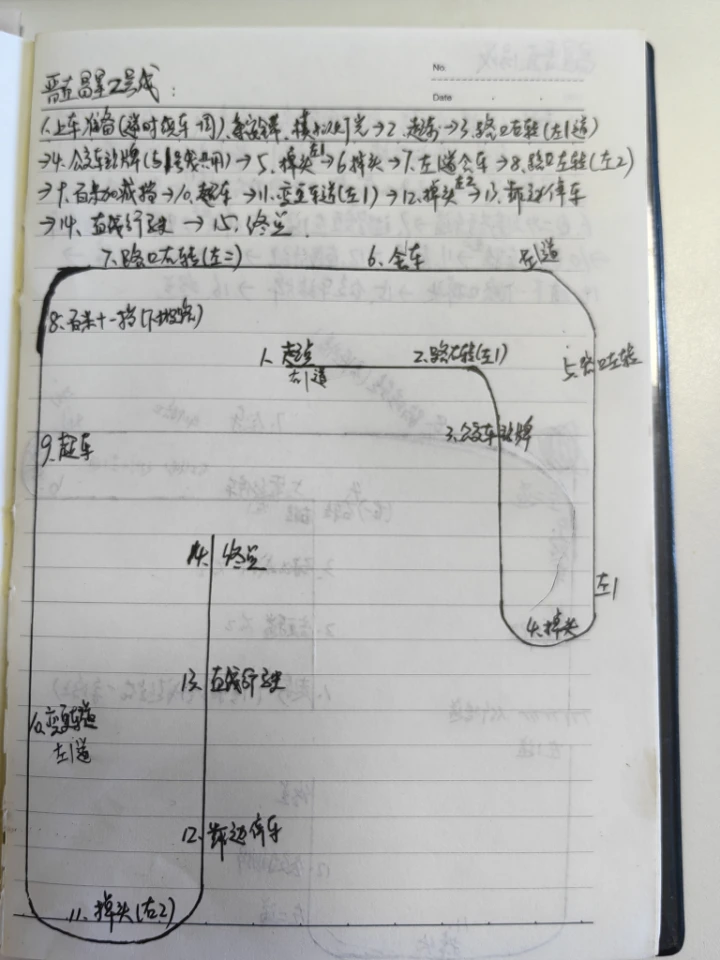 No.
Date
2号线:
1.上车准备(逆时绕车一周)、模拟灯光→2.起步→3.路口右转(左1道)
→4.公交车站牌(与1号线共用)→5.掉头左1→6掉头→7.左1道会车→8.路口左转(左2)
→9.百米加减挡→10.超车→11.变更车道(左1)→12.掉头左2→13.靠边停车
→14.直线行驶→15.终点
7.路口左转(左二) 6.会车 左1道
8.百米十一挡
1.起点 2.路口右转(左1) 5.路口左转
右1道
3.公交车站牌
9.超车
14.终点
左1
4.掉头
13.直线行驶
10.变更车道
左1道
12.靠边停车
11.掉头(右2)